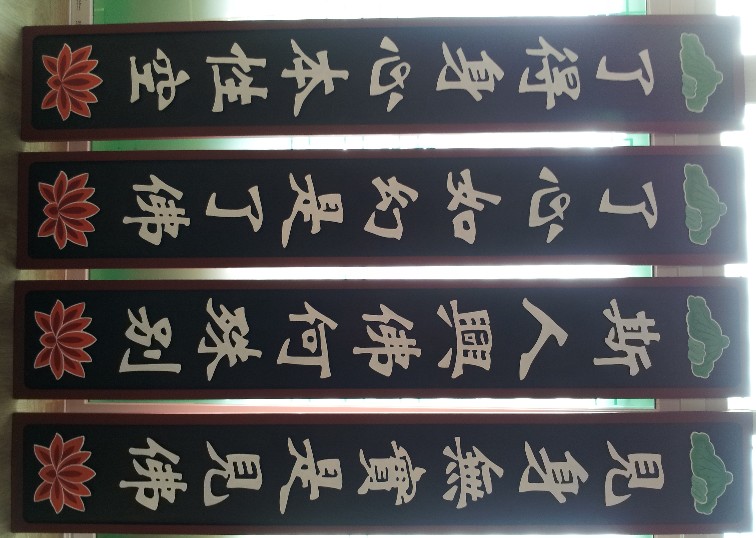 見身無實是見佛
斯人興佛何殊別
了心如幻是了佛
了得身心本性空